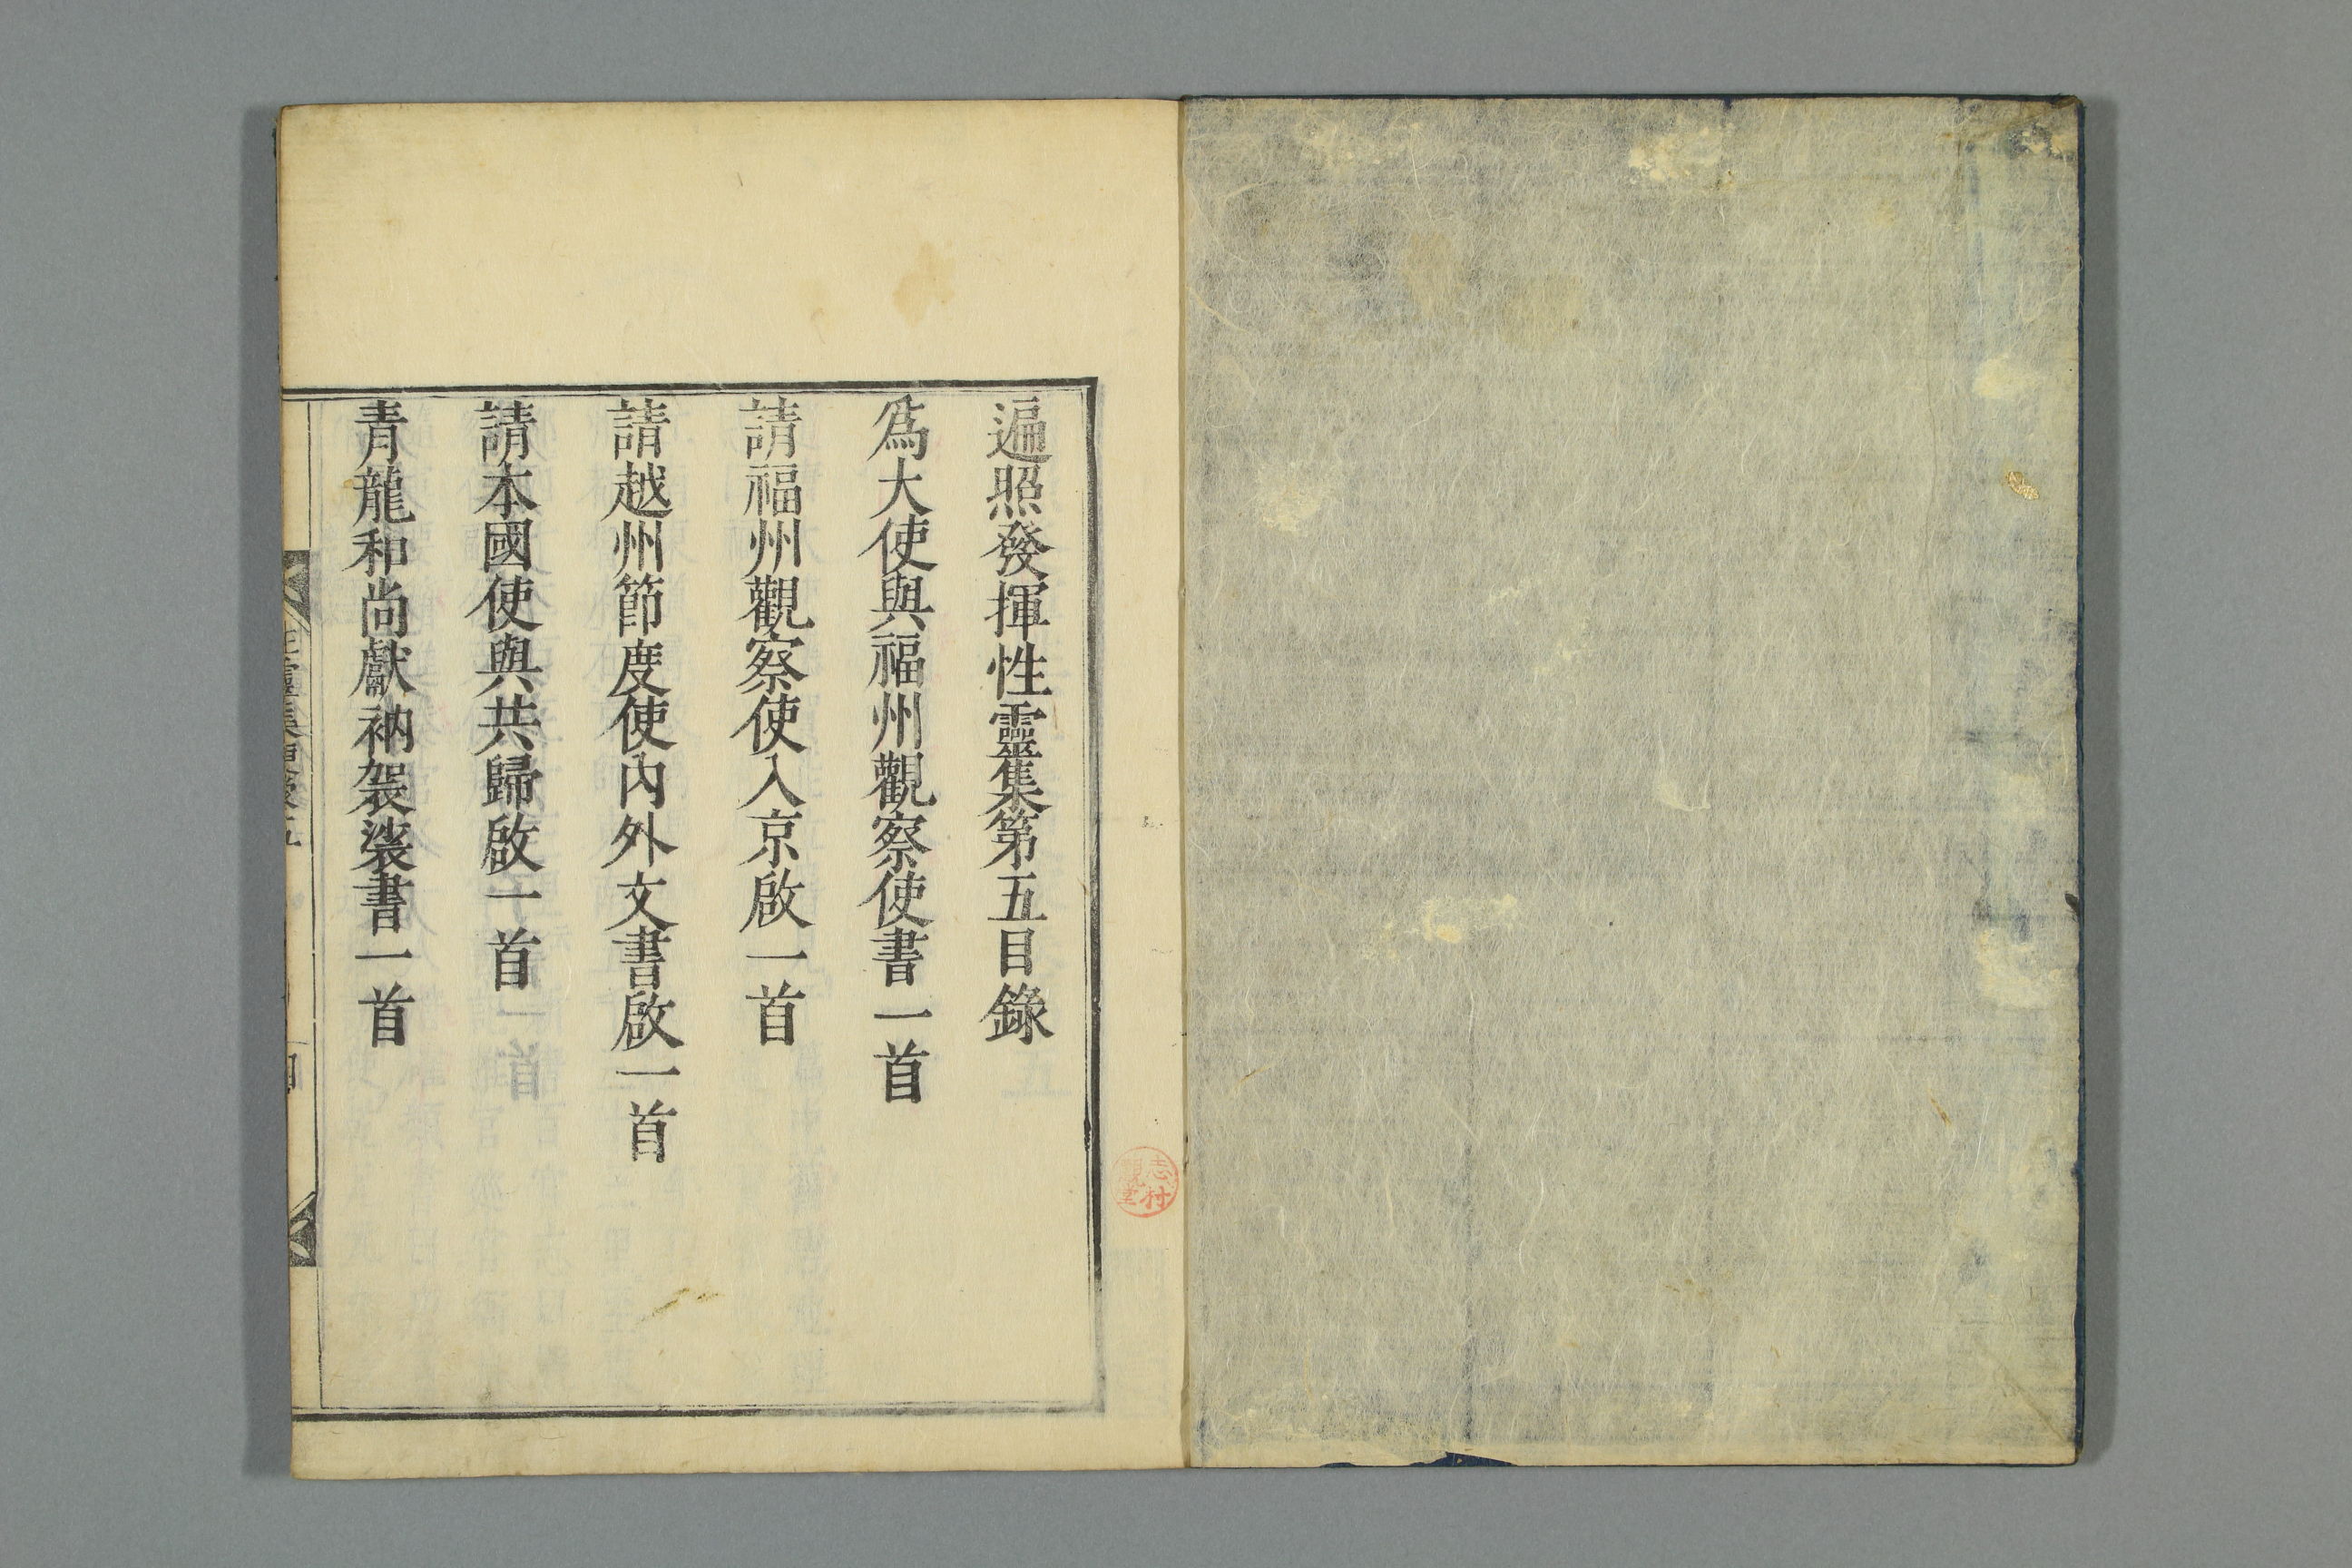 遍照發揮性靈集第五目錄
爲大使與福州觀察使書一首
請福州觀察使入京啟一首
請越州節度使內外文書啟一首
請本國使與共歸啟一首
青龍和尚獻衲袈裟書一首